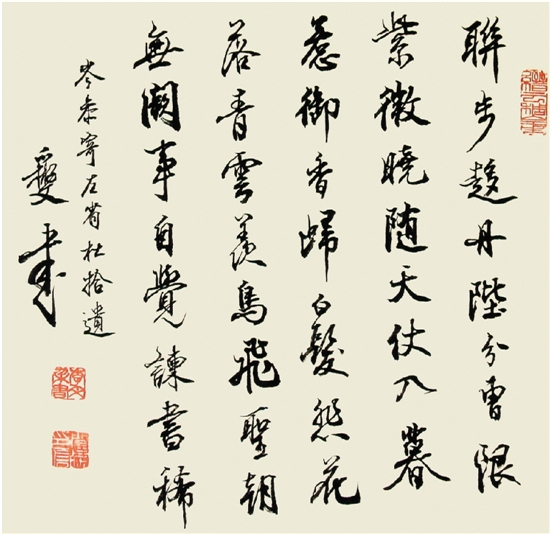 聯步趨丹陛分曹限
紫微曉随天仗入暮
惹御香歸白髮悲花
落青雲羨鳥飛聖朝
無闕事自覺諫書稀
岑參寄左省杜拾遺
書